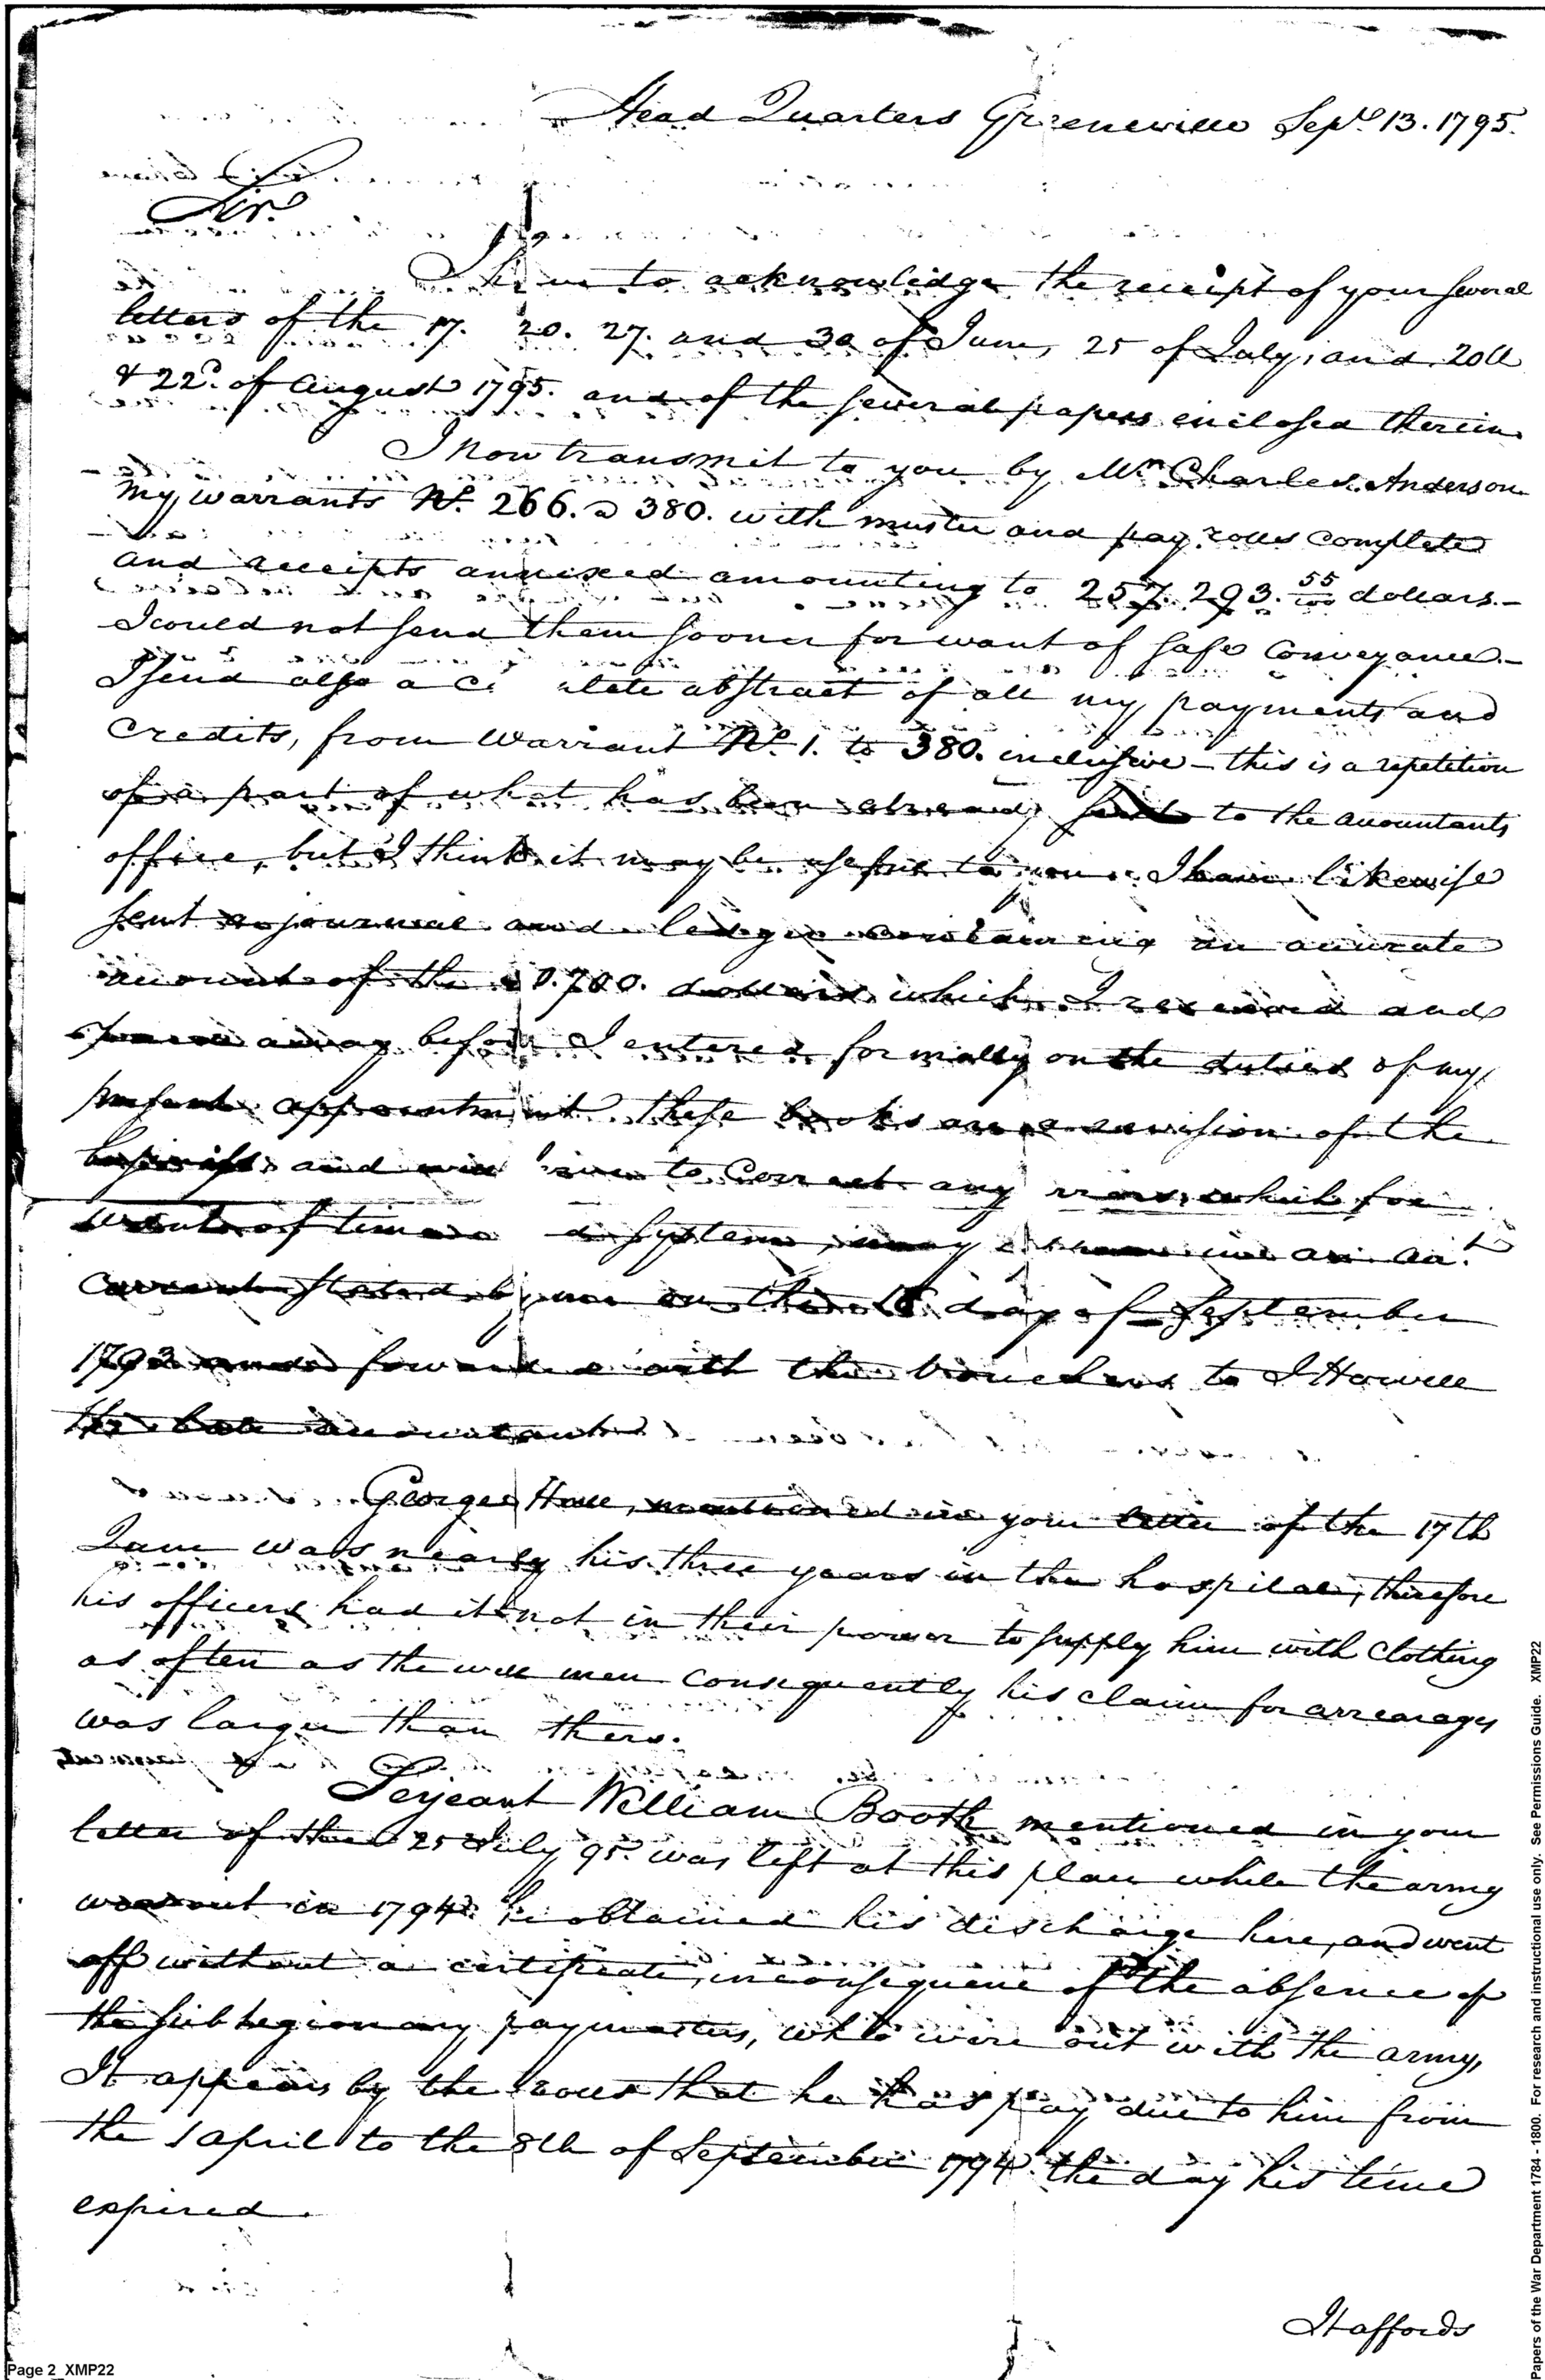 Head Quarters Greeneville Sept. 13. 1795.
Sir.
I have to acknowledge the receipt of your several
letters of the 17. 20. 27. and 30 of June, 25 of July, and 20th
& 22d. of August 1795. and of the several papers enclosed therein.
I now transmit to you by Mr. Charles Anderson
my warrants No. 266. a 380. with muster and pay rolls complete
and receipts annexed amounting to 257.293. 55/100 dollars.-
I could not send them sooner for want of safe Conveyance.-
I send also a abstract of all my payments and
Credits, from Warrant No. 1. to 380. inclusive - this is a repetition
of a part of what has been already sent to the accountants
office, but I think it may be useful to you. I have likewise
sent a journal and ledger containing an accurate
account of the 0.700. dollars which I received and
away before I entered formally on the duties of my
present appointment. these books are a revision of the
business and will to Correct any errors, which for
want of time system, may in an acct.
Current stated by me on the 18 day of September
1793 and forwarded with the vouchers to J Howell
the late accountant
George Hall, mentioned in your letter of the 17th
June was nearly his three years in the hospital, therefore
his officers had it not in their power to supply him with Clothing
as often as the well men Consequently his claim for arrearages
was larger than thers.
Serjeant William Booth mentioned in your
letter of the 25 July 95. was left at this place while the army
was out in 1794. he obtained his discharge here, and went
off without a certificate, in consequence of the absence of
the sub legionary paymasters, who were out with the army,
It appears by the rolls that he has pay due to him from
the 1 april to the 8th of September 1794. the day his time
expired.
It affords
Page 2 XMP22
Papers of the War Department 1784 - 1800. For research and instructional use only. See Permissions Guide. XMP22